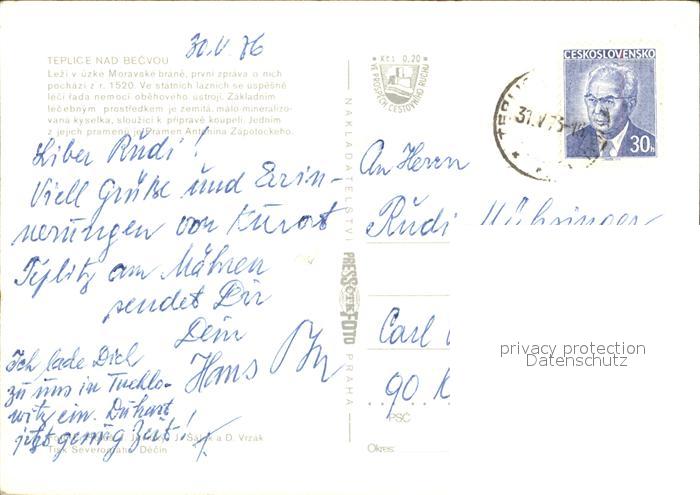 30.V.76
TEPLICE NAD BEČVOU
Leží v úzke Moravské bráně, první zpráva o nich
pochází z r. 1520. Ve státních lázních se úspěšně
léčí řada nemocí oběhového ústrojí. Základním
léčebným prostředkem je zemitá, málo mineralizo-
vaná kyselka, sloužící k přípravě koupelí. Jedním
z jejich pramenů je Pramen Antonína Zápotockého.
Liber Rudi!
Viell Grüße und Errin-
nerungen von Kurort
Töplitz am Mähren
sendet Dir
Dein
Hans
Ich lade Dich
zu uns in Tuchlo-
witz ein. Du hast
jetzt genug Zeit!
a D. Vrzák
Tisk Severografia Děčín
Kčs 0,20
VE PROSPĚCH CESTOVNÍHO RUCHU
NAKLADATELSTVÍ PRESSFOTO PRAHA
ČESKOSLOVENSKO
30h
31.V.76
An Herrn
Rudi
Carl
90
PSČ
Okres:
privacy protection
Datenschutz